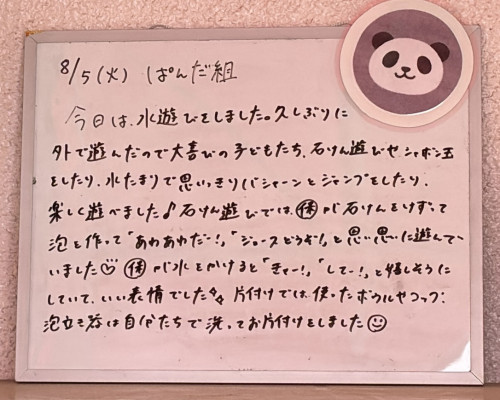 8/5(火) ぱんだ組
今日は、水遊びをしました。久しぶりに
外で遊んだので大喜びの子どもたち。石けん遊びや、シャボン玉
をしたり、水たまりで思いっきりバシャーンとジャンプをしたり、
楽しく遊べました♪石けん遊びでは、㋭が石けんをけずって
泡を作って「あわあわだー!」、「ジュースどうぞ!」と思い思いに遊んで
いました♡ が水をかけると「きゃー!」、「してー!」と嬉しそうに
していて、いい表情でした 片付けでは、使ったボウルやコップ、
泡立て器は自分たちで洗ってお片付けをしました☺